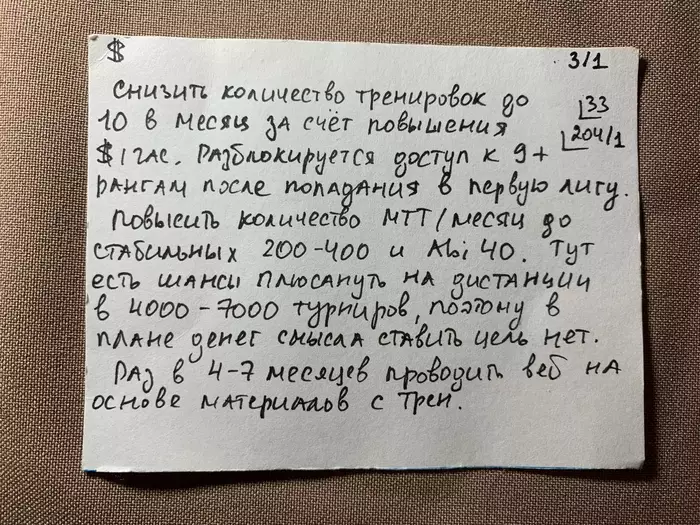 $
3/1
Снизить количество тренировок до
33
10 в месяц за счёт повышения
204/1
$/час. Разблокируется доступ к 9+
рангам после попадания в первую лигу.
Повысить количество МТТ/месяц до
стабильных 200-400 и Abi 40. Тут
есть шансы плюсануть на дистанции
в 4000-7000 турниров, поэтому в
плане денег смысла ставить цель нет.
Раз в 4-7 месяцев проводить веб на
основе материалов с трен.